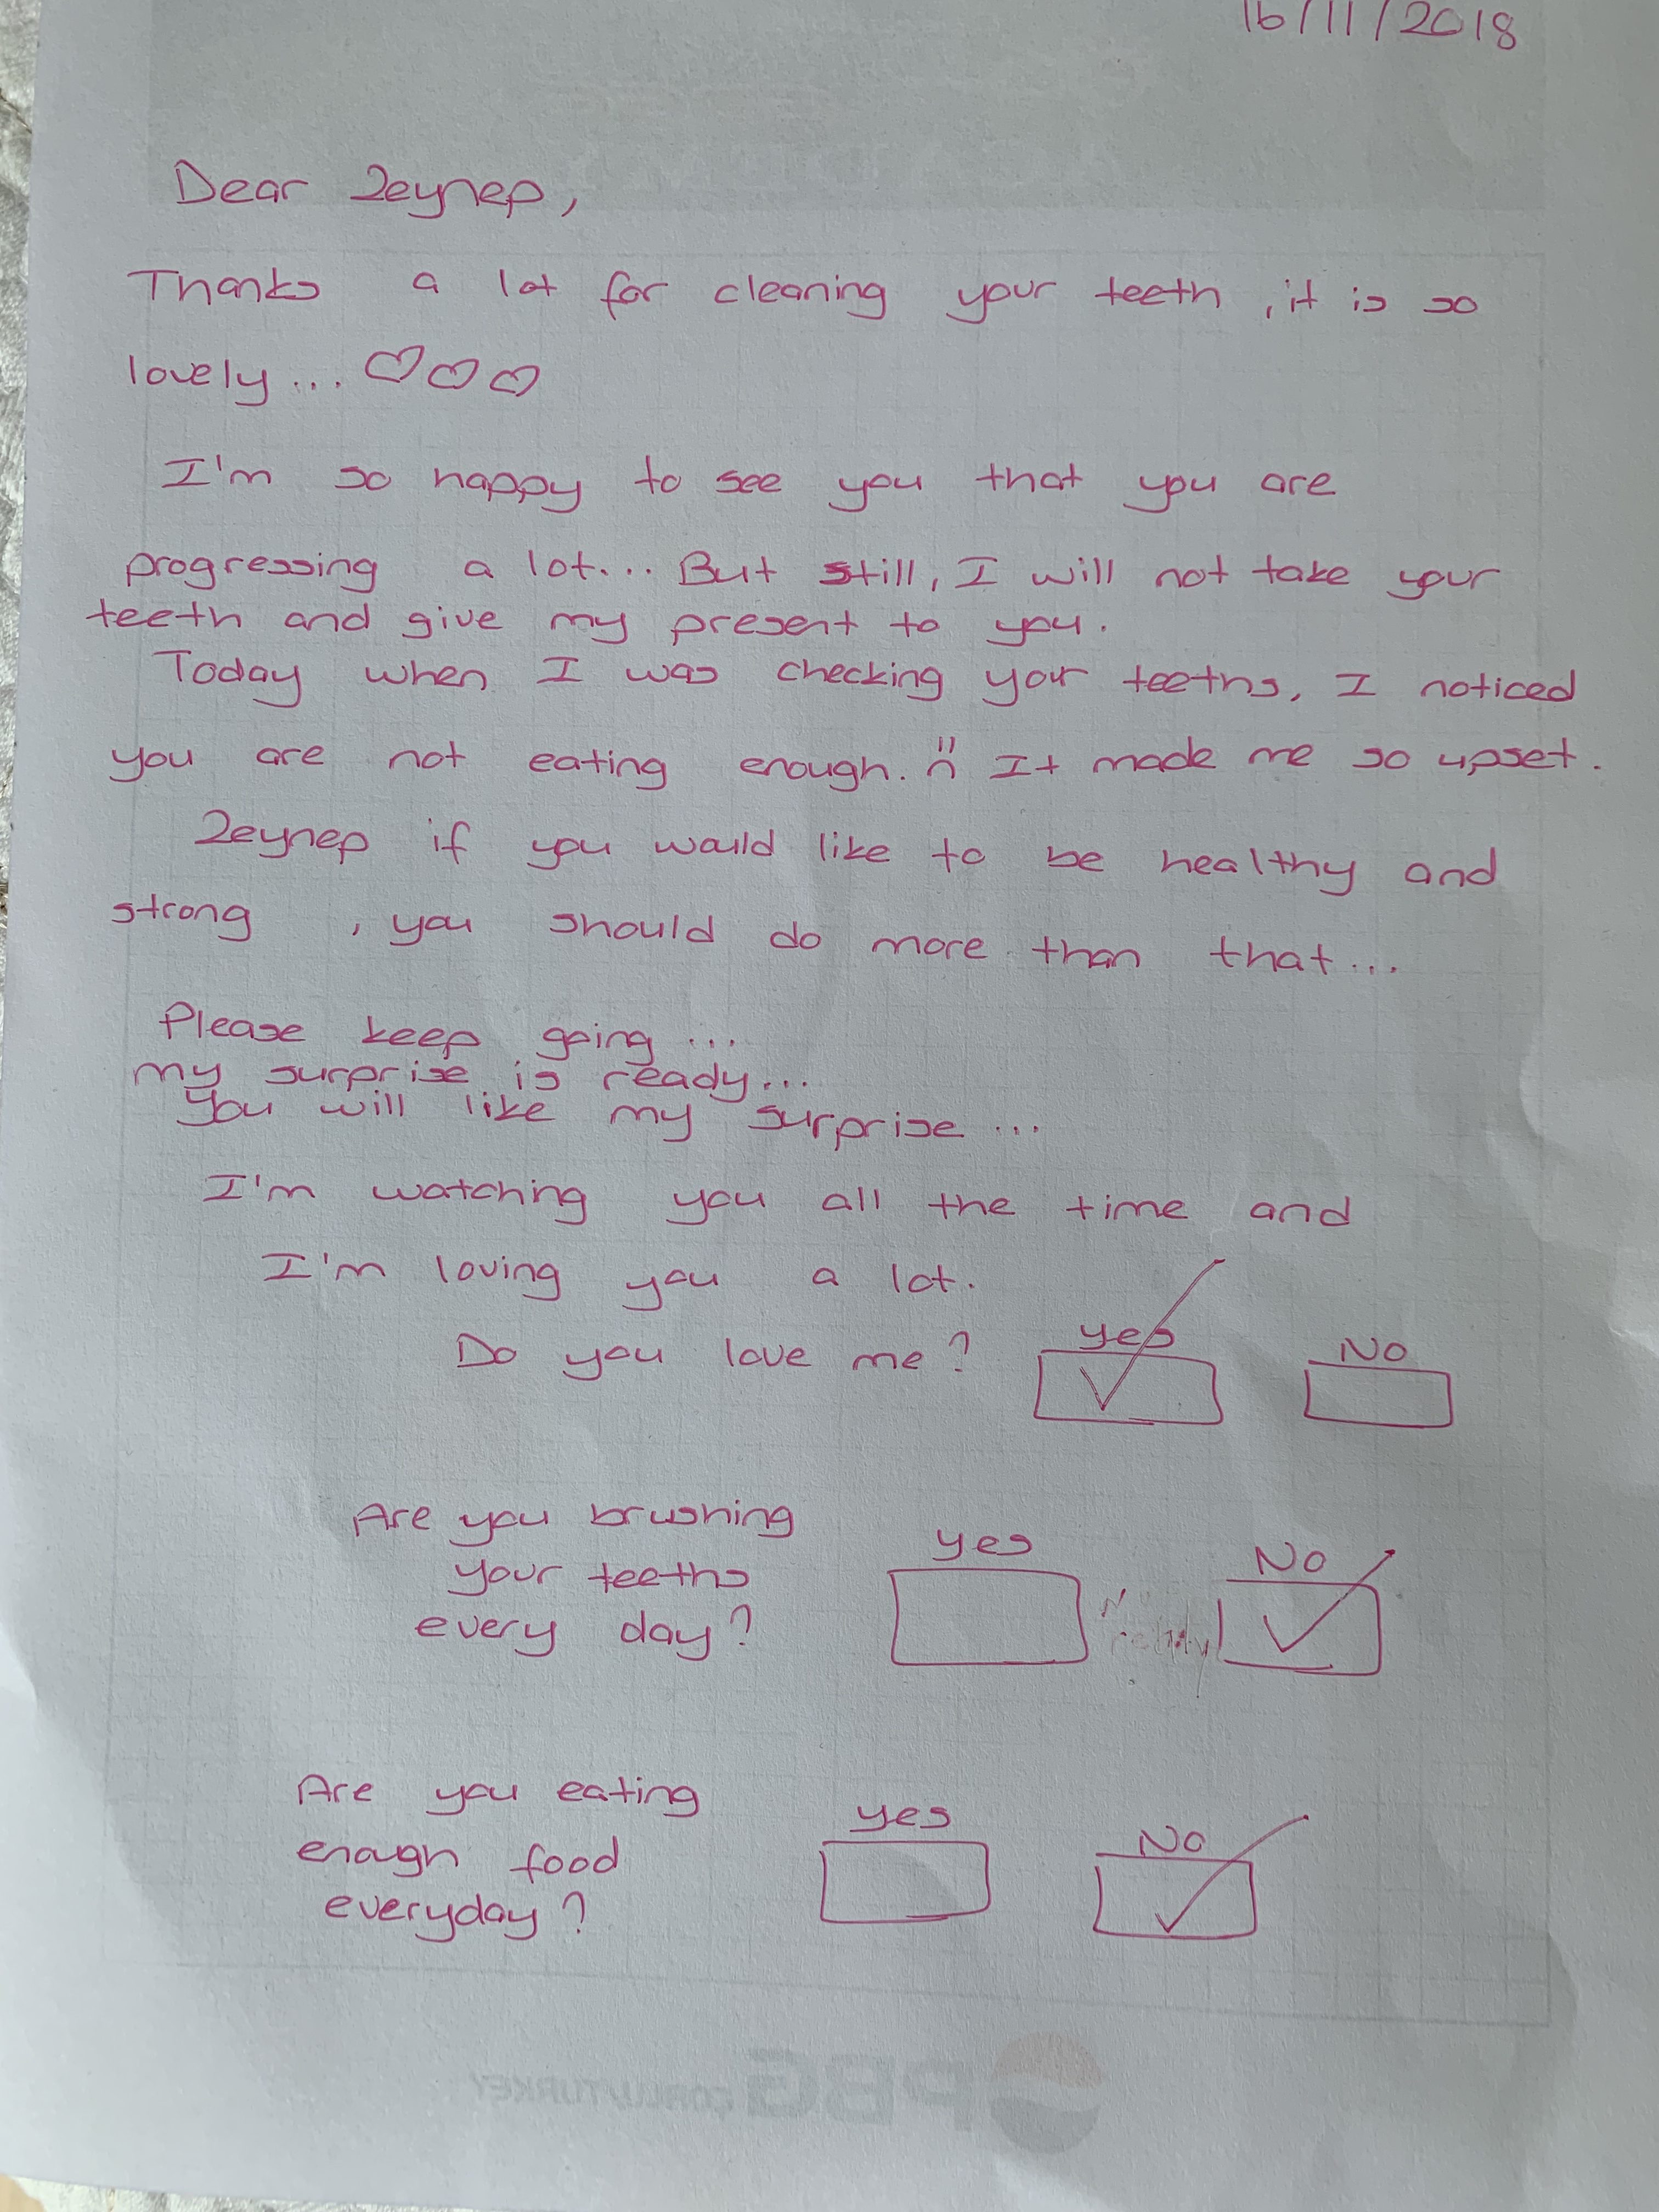 16/11/2018
Dear Zeynep,
Thanks a lot for cleaning your teeth, it is so
lovely... ♡♡♡
I'm so happy to see you that you are
progressing a lot... But still, I will not take your
teeth and give my present to you.
Today when I was checking your teeths, I noticed
you are not eating enough. It made me so upset.
Zeynep if you would like to be healthy and
strong, you should do more than that...
Please keep going...
my surprise is ready...
You will like my surprise...
I'm watching you all the time and
I'm loving you a lot.
Do you love me? yes ✓ NO
Are you brushing
your teeths
every day? yes NO ✓
Are you eating
enough food
everyday? yes NO ✓
PBG ÇORLU/TURKEY